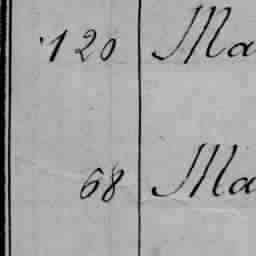 120 Ma
68 Ma